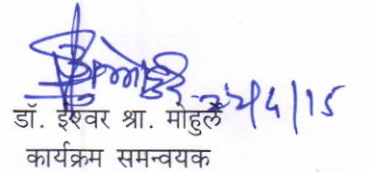 डॉ. ईश्वर श्रा. मोहुर्ले
कार्यक्रम समन्वयक